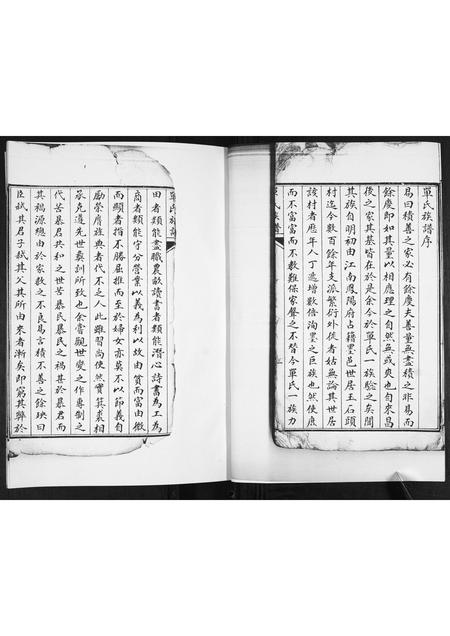 單氏族譜序
易曰積善之家必有餘慶夫善量無盡積之非易而
餘慶即如其量以相應理之自然無或爽也自來昌
後之家其基皆在於是余今於單氏一族驗之矣閱
其族自明初由江南鳳陽府占籍墨邑世居王石頭
村迄今數百餘年支派繁衍外徙者姑無論其世居
該村者歷年人丁迭增數倍洵墨之巨族也然使庶
而不富富而不教難保家聲之不替今單氏一族力
單氏族譜
田者類能盡職農畝讀書者類能潛心詩書為工為
商者類能守分營業以義為利以故由質而富由微
而顯者指不勝屈推而至於婦女亦莫不以節義自
勵榮膺旌典者代不乏人此雖習尚使然實其裘相
承克遵先世彝訓所致也余嘗觀世變之作專制之
代苦暴君共和之世苦暴民暴民之禍甚於暴君而
其禍源總由於家教之不良易言積不善之餘殃曰
臣弒其君子弒其父其所由來者漸矣即窮其弊於